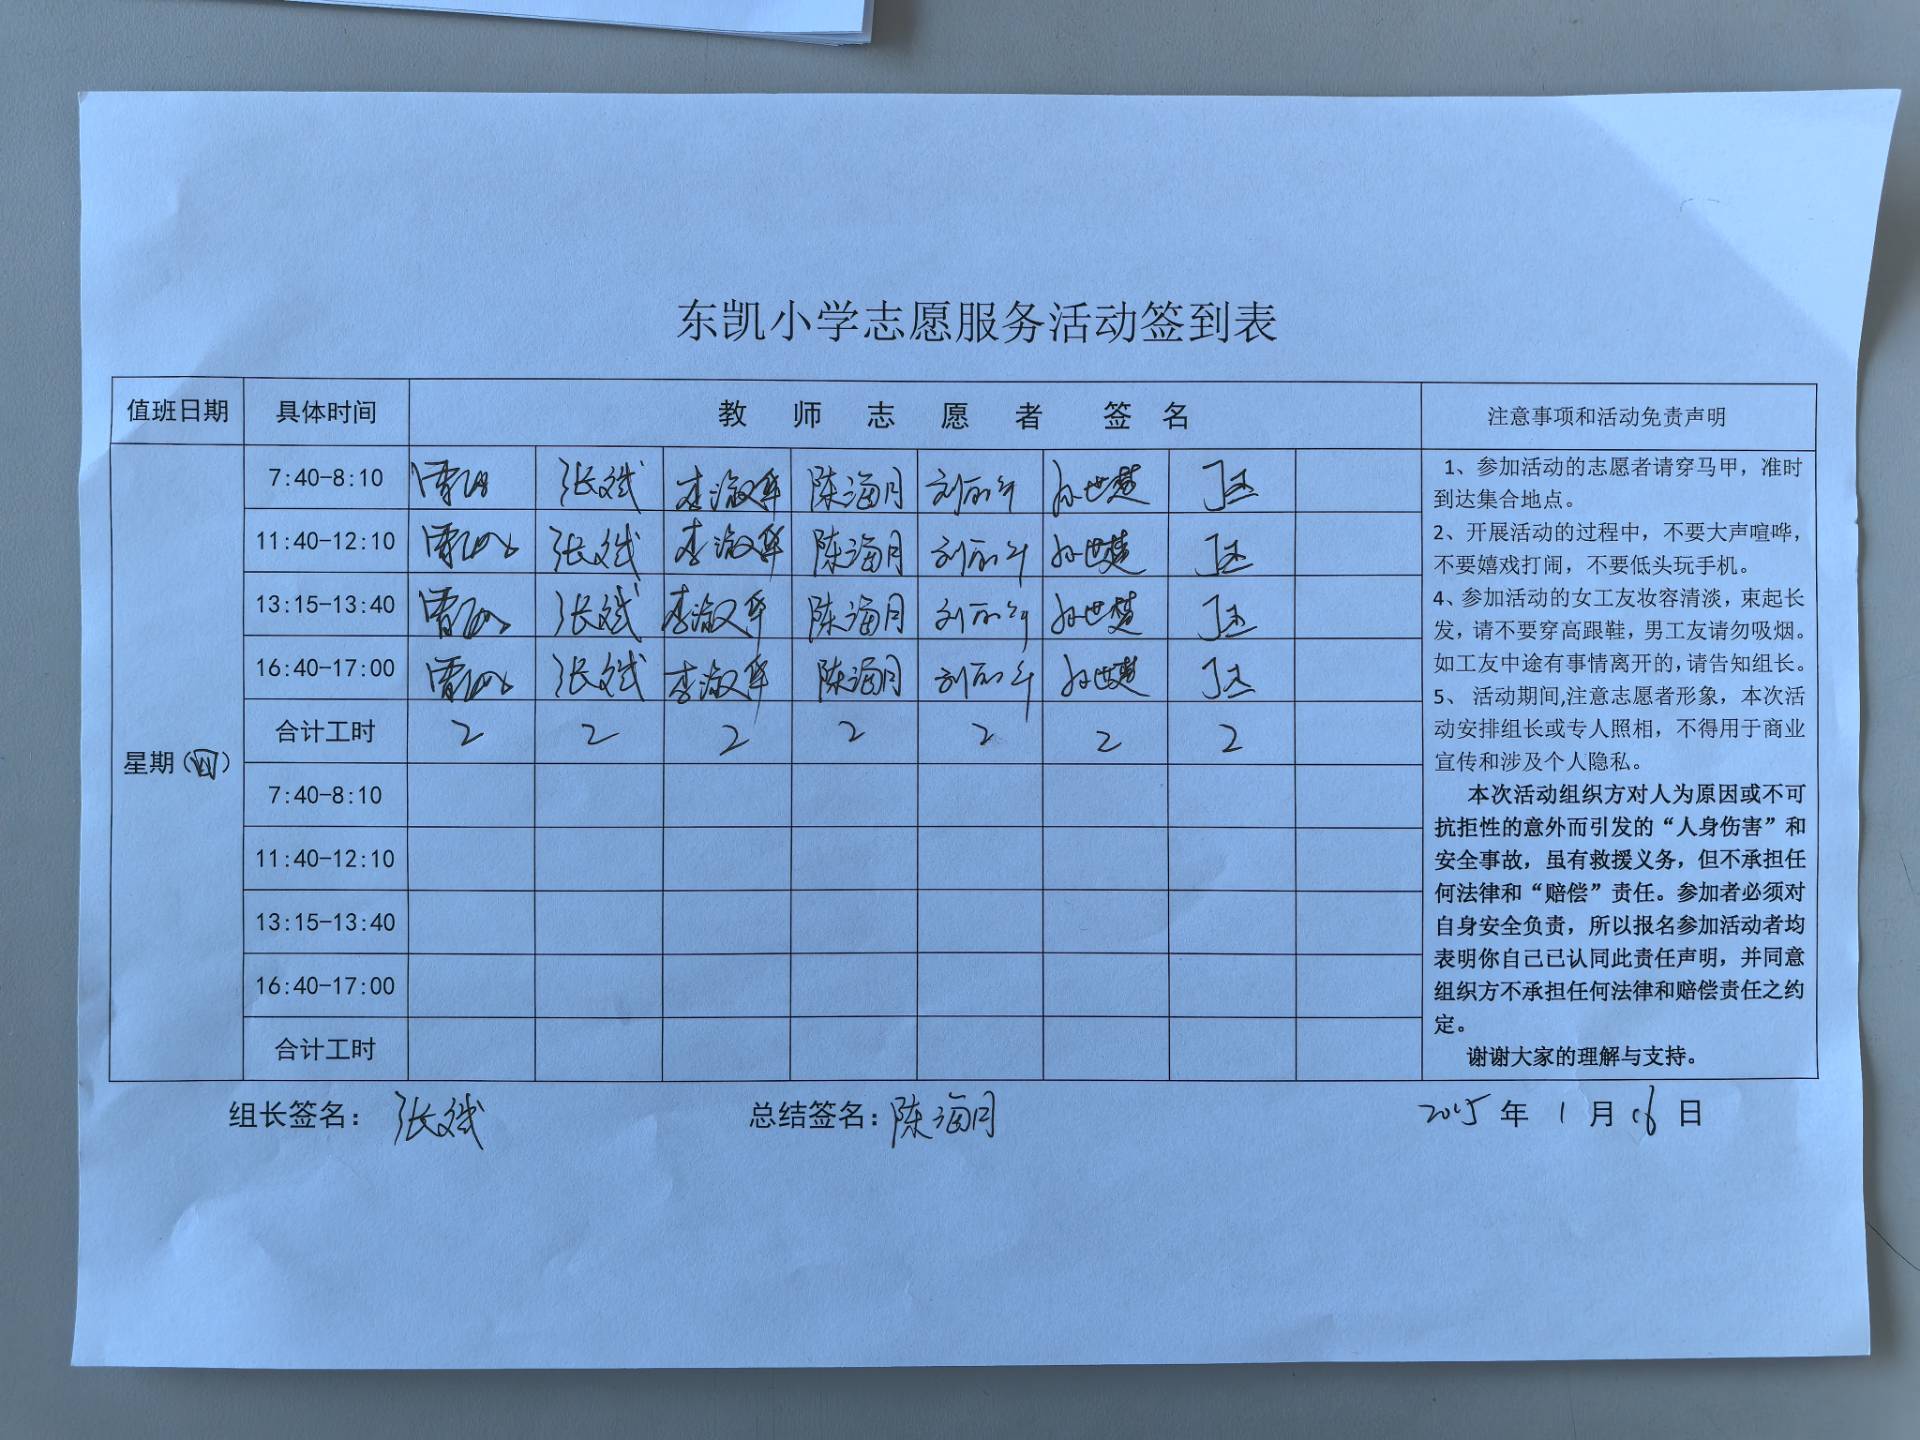 东凯小学志愿服务活动签到表
值班日期 具体时间 教师志愿者 签名 注意事项和活动免责声明
星期(四)
7:40-8:10 张斌 李淑华 陈海月 孙世楚
11:40-12:10 张斌 李淑华 陈海月 孙世楚
13:15-13:40 张斌 李淑华 陈海月 孙世楚
16:40-17:00 张斌 李淑华 陈海月 孙世楚
合计工时 2 2 2 2 2 2 2
7:40-8:10
11:40-12:10
13:15-13:40
16:40-17:00
合计工时
1、参加活动的志愿者请穿马甲，准时
到达集合地点。
2、开展活动的过程中，不要大声喧哗，
不要嬉戏打闹，不要低头玩手机。
4、参加活动的女工友妆容清淡，束起长
发，请不要穿高跟鞋，男工友请勿吸烟。
如工友中途有事情离开的，请告知组长。
5、 活动期间,注意志愿者形象，本次活
动安排组长或专人照相，不得用于商业
宣传和涉及个人隐私。
本次活动组织方对人为原因或不可
抗拒性的意外而引发的“人身伤害”和
安全事故，虽有救援义务，但不承担任
何法律和“赔偿”责任。参加者必须对
自身安全负责，所以报名参加活动者均
表明你自己已认同此责任声明，并同意
组织方不承担任何法律和赔偿责任之约
定。
谢谢大家的理解与支持。
组长签名：张斌 总结签名：陈海月 2025年 1 月 16 日